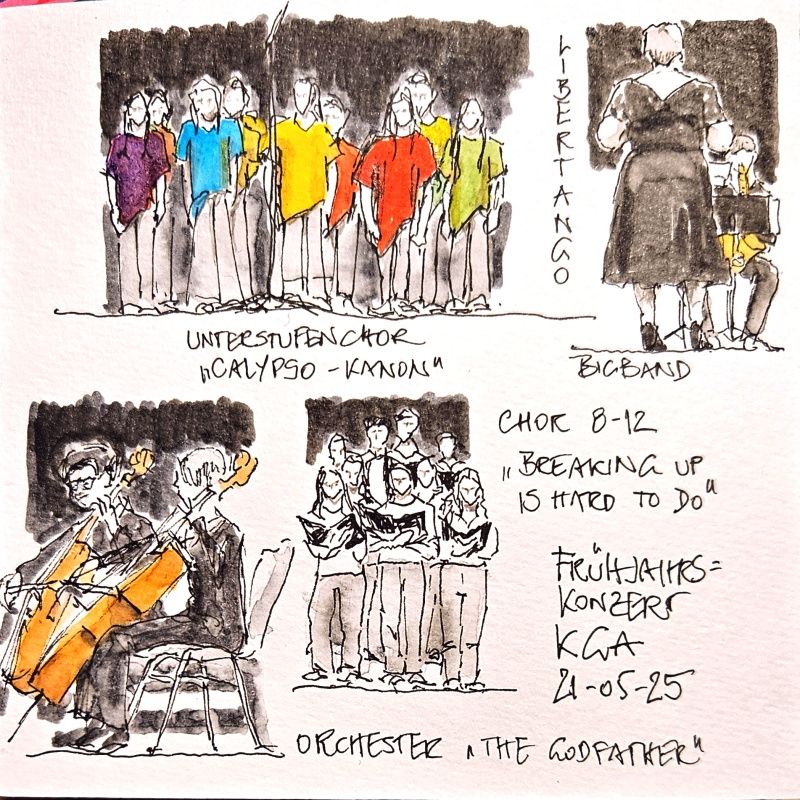 UNTERSTUFENCHOR
„CALYPSO - KANON"
LIBERTANGO
BIGBAND
CHOR 8-12
„BREAKING UP
IS HARD TO DO"
FRÜHJAHRS=
KONZERT
KGA
21-05-25
ORCHESTER „THE GODFATHER"